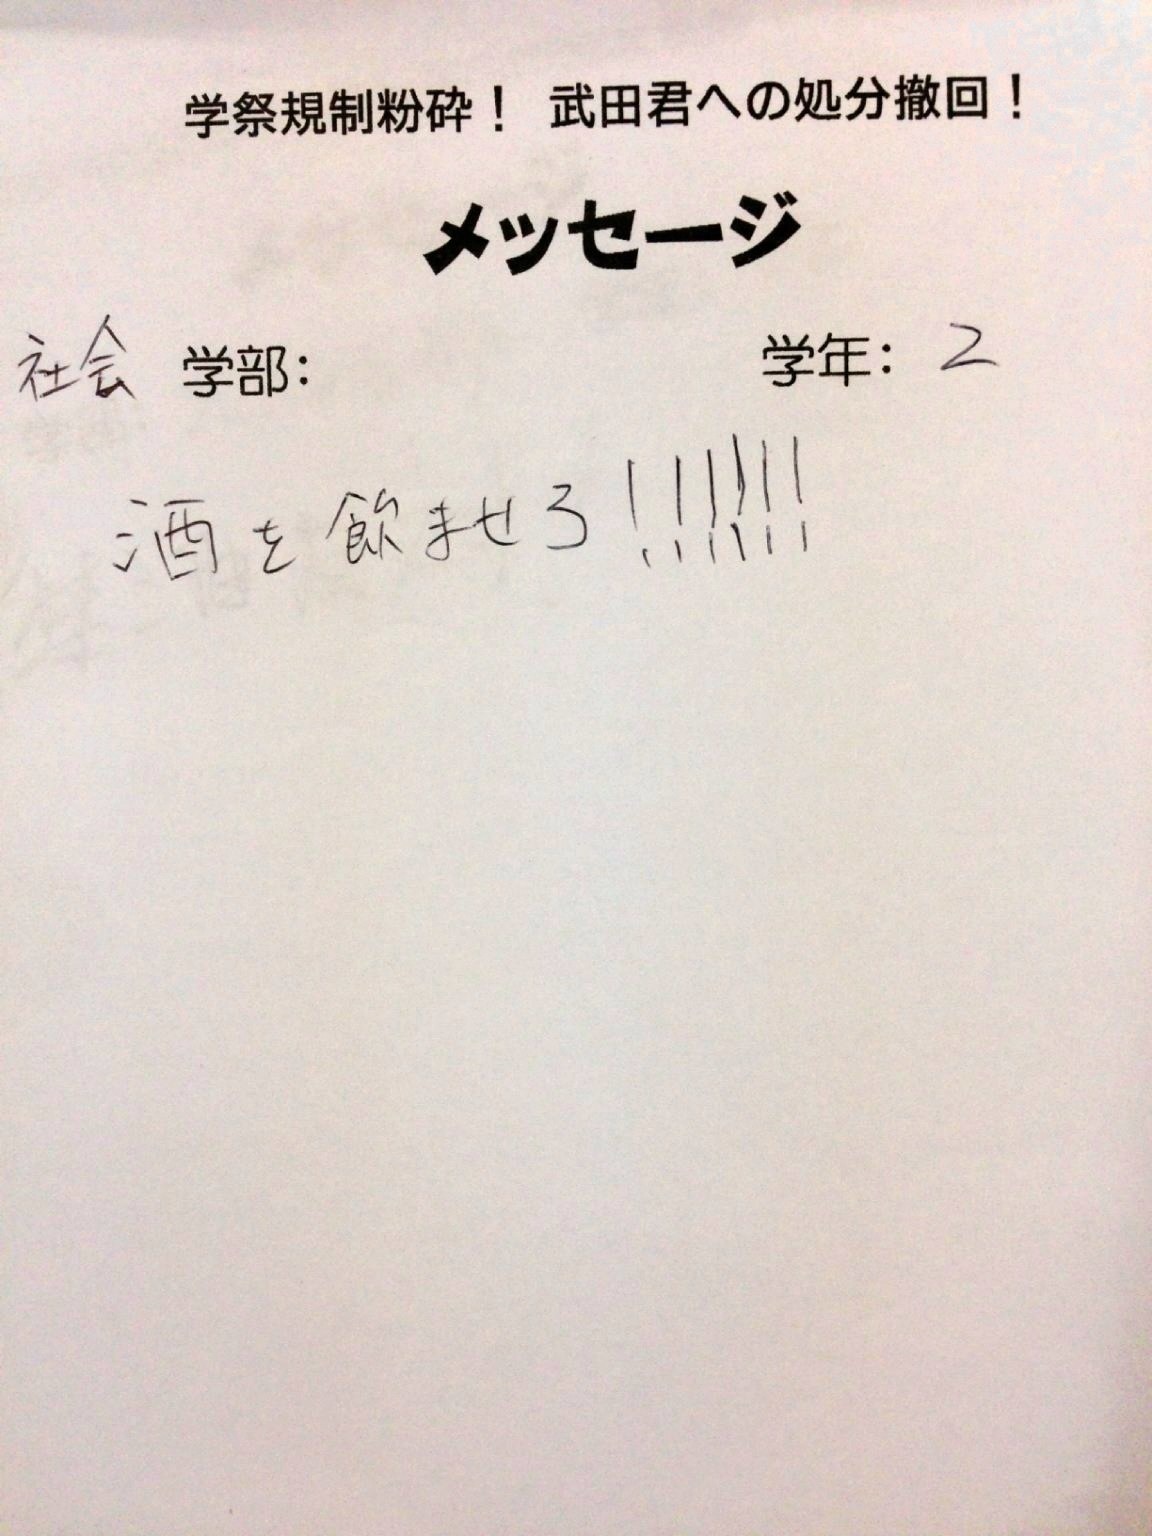 学祭規制粉砕！ 武田君への処分撤回！
メッセージ
社会 学部： 学年： 2
酒を飲ませろ！！！！！！